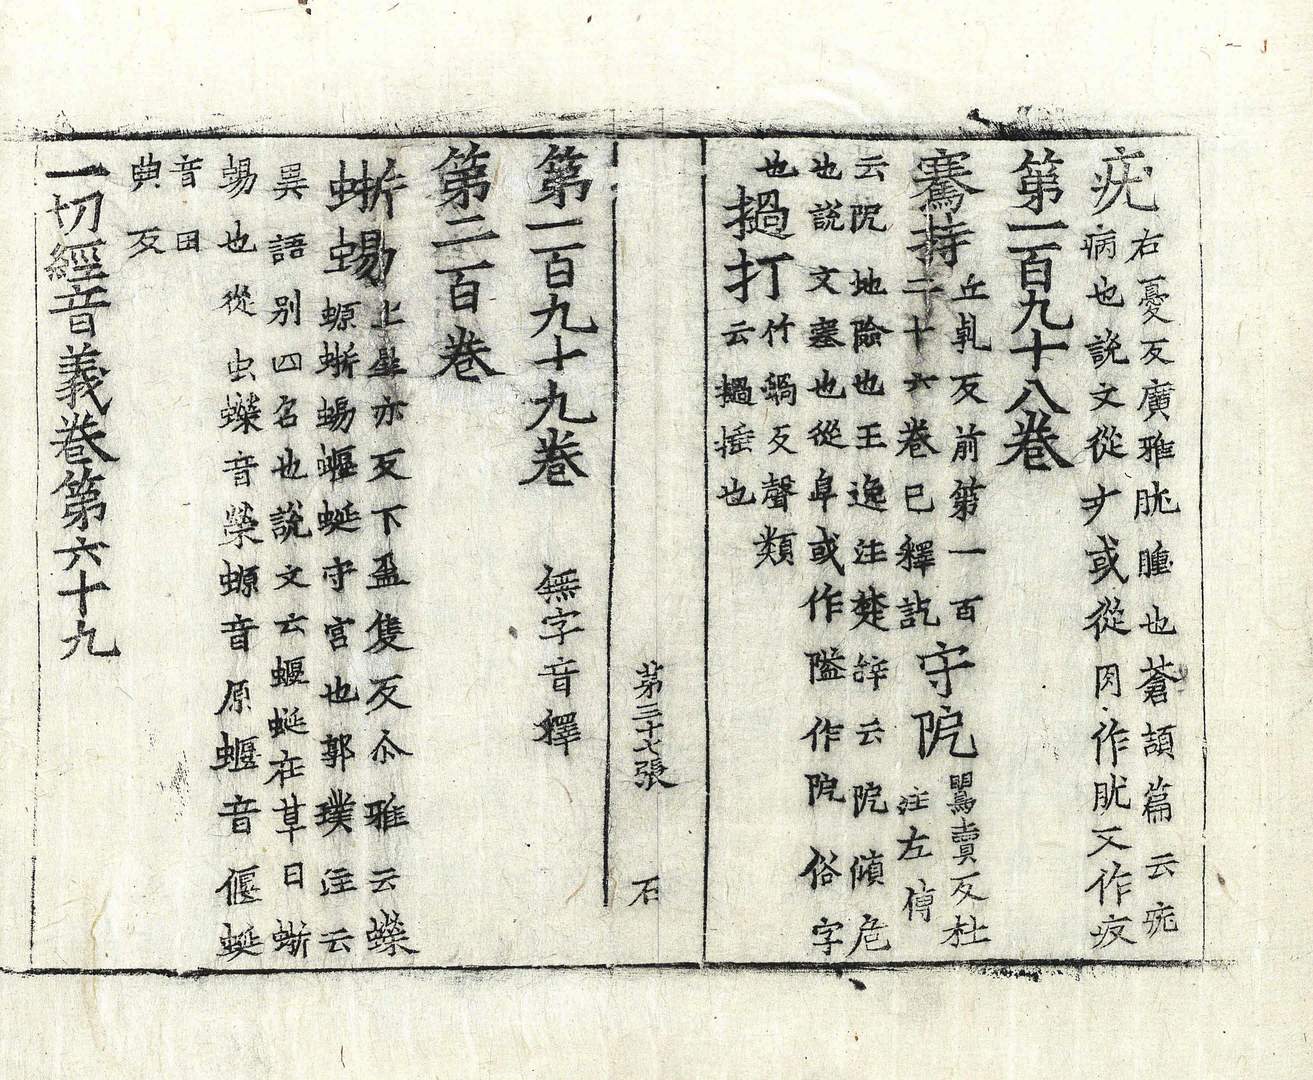 疣
右憂反廣雅肬腫也蒼頡篇云疣
病也說文從尤或從肉作肬又作疫
第一百九十八卷
騫特
丘乹反前第一百
二十六卷已釋訖
守阨
罌賣反杜
注左傳
云阨地險也王逸注楚辝云阨傾危
也說文塞也從阜或作隘作阨俗字
也
撾打
竹蝸反聲類
云撾捶也
第三十七張 石
第一百九十九卷 無字音釋
第二百卷
蜥蜴
上星亦反下盈隻反尒雅云蠑
螈蜥蜴蝘蜓守宮也郭璞注云
異語別四名也說文云蝘蜓在草曰蜥
蜴也從虫蠑音榮螈音原蝘音偃蜓
音田
典反
一切經音義卷第六十九